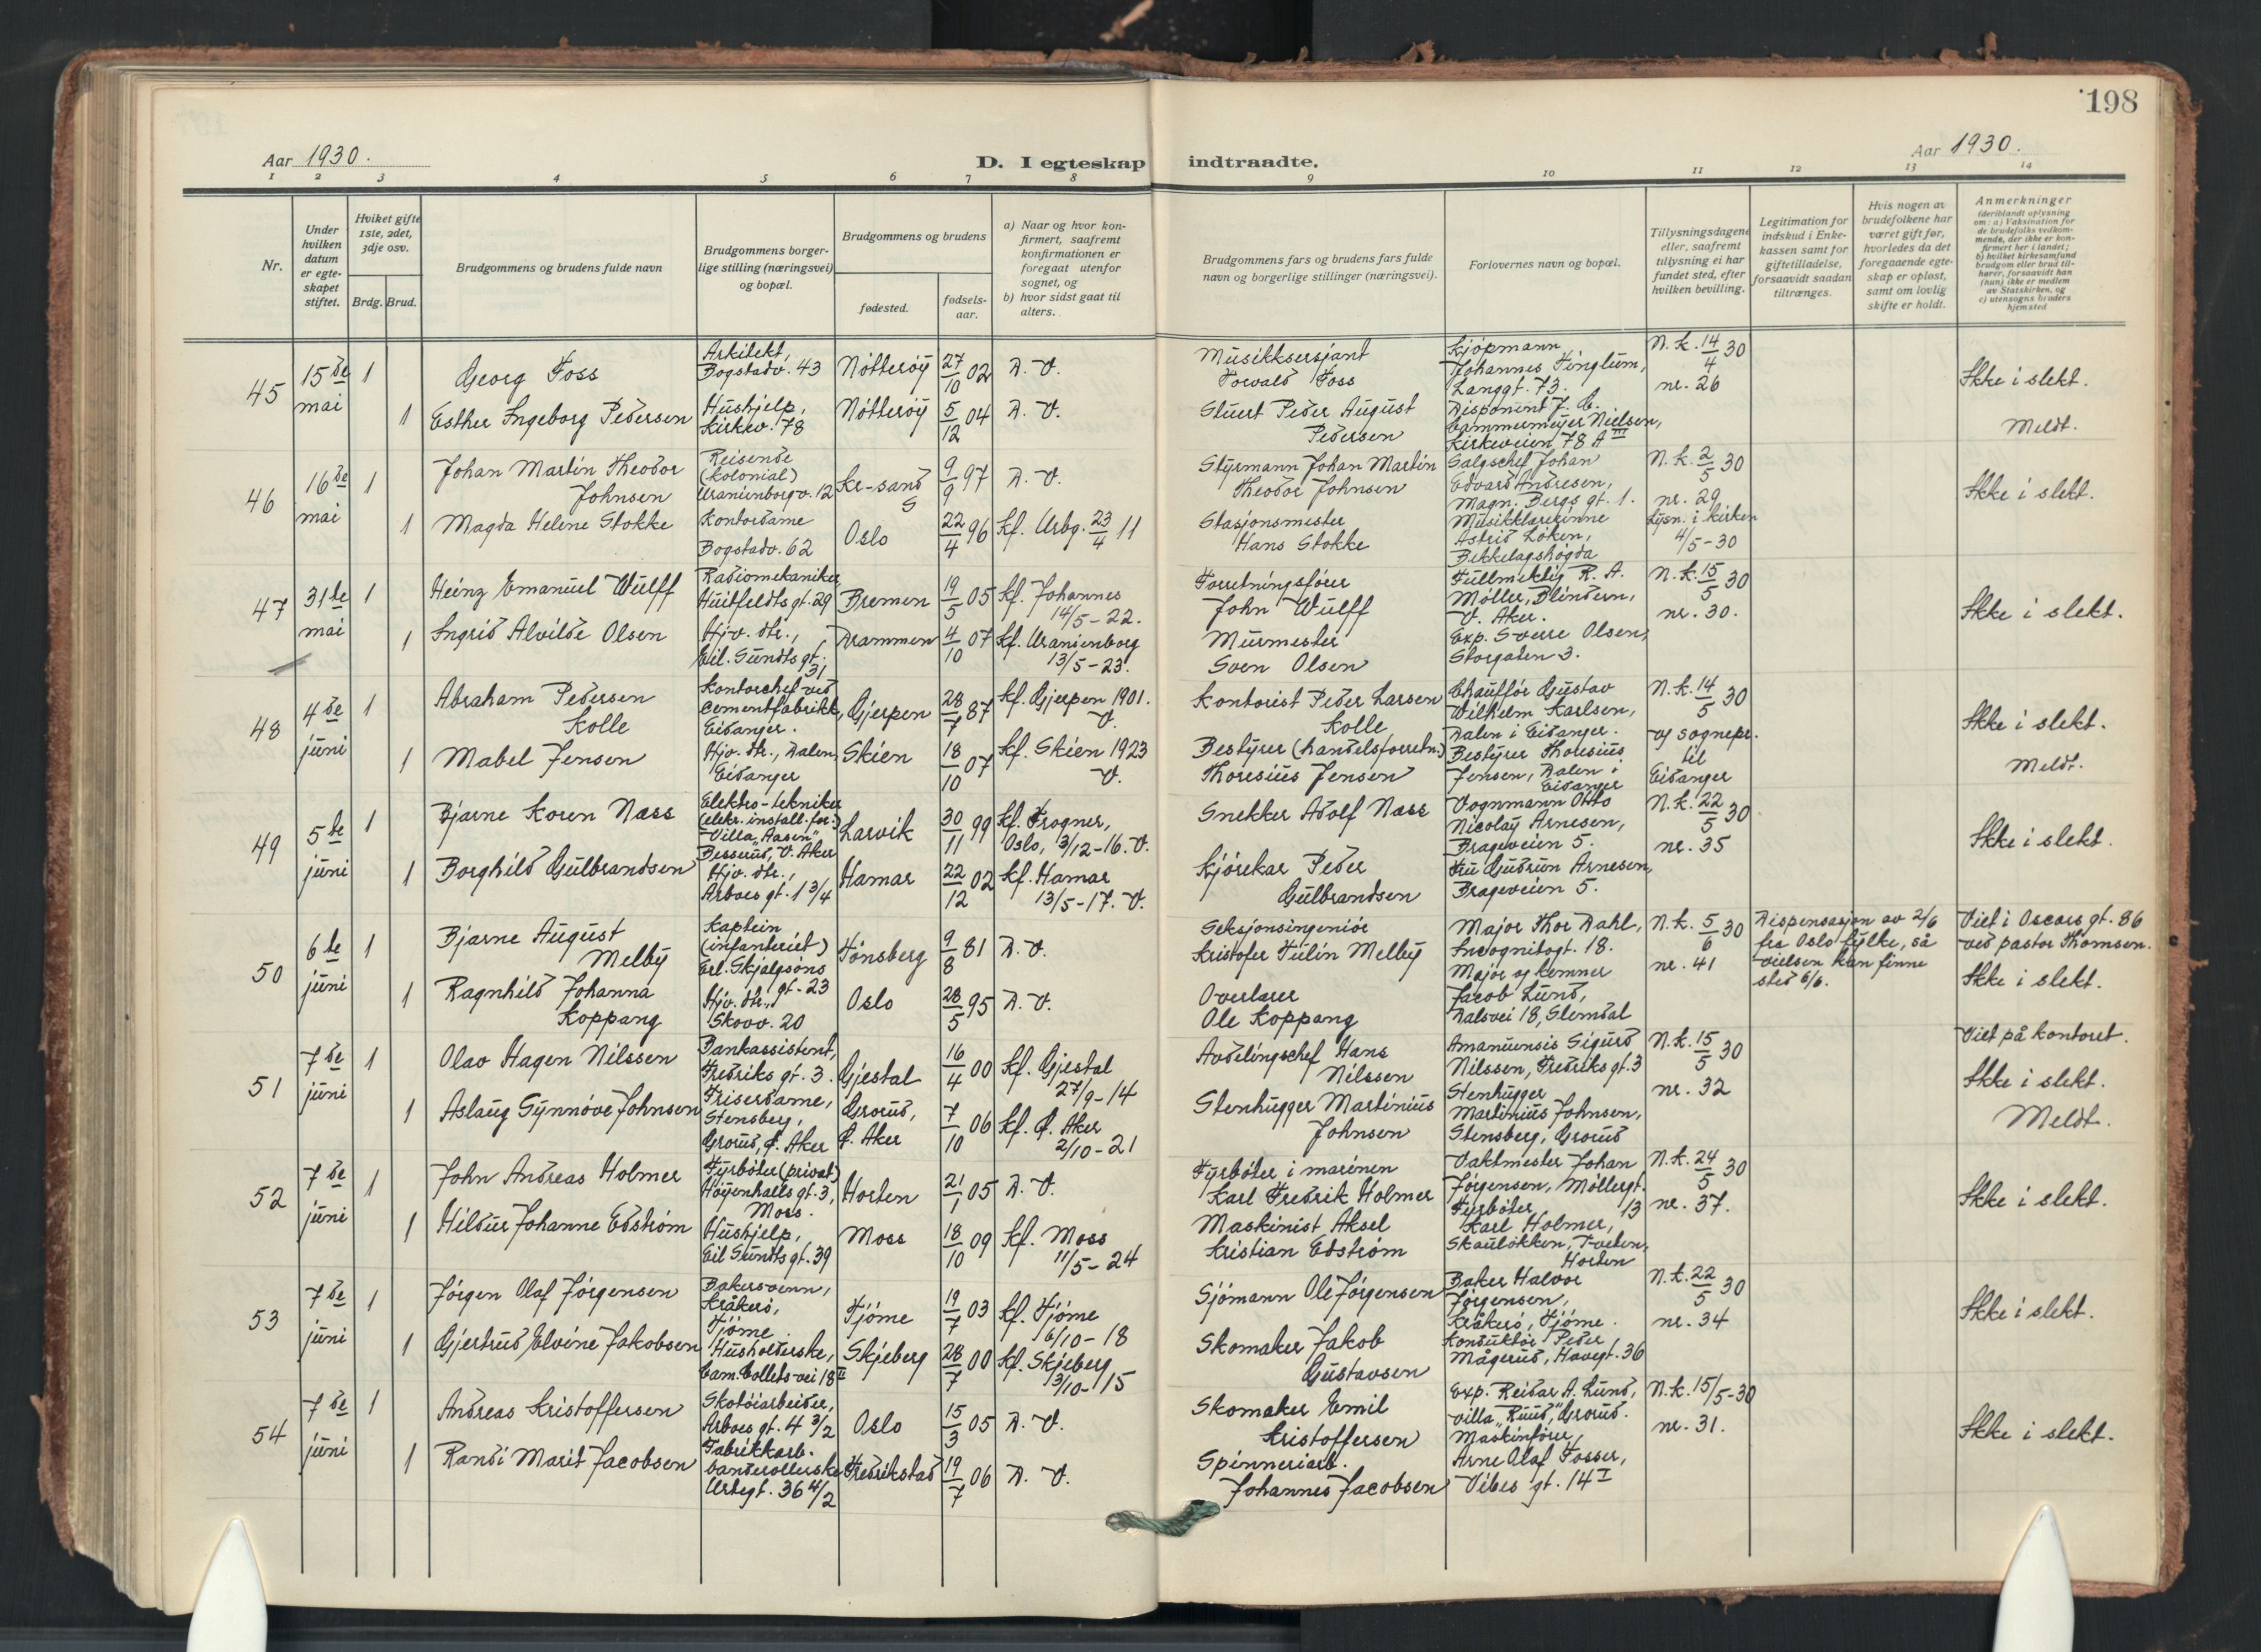 198
Aar 1930.
D. I egteskap indtraadte.
Aar 1930.
1 2 3 4 5 6 7 8 9 10 11 12 13 14
Nr.
Under
hvilken
datum
er egte-
skapet
stiftet.
Hvilket gifte
1ste, 2det,
3dje osv.
Brdg. Brud.
Brudgommens og brudens fulde navn
Brudgommens borger-
lige stilling (næringsvei)
og bopæl.
Brudgommens og brudens
fødested.
fødsels-
aar.
a) Naar og hvor kon-
firmert, saafremt
konfirmationen er
foregaat utenfor
sognet, og
b) hvor sidst gaat til
alters.
Brudgommens fars og brudens fars fulde
navn og borgerlige stillinger (næringsvei).
Forlovernes navn og bopæl.
Tillysningsdagene
eller, saafremt
tillysning ei har
fundet sted, efter
hvilken bevilling.
Legitimation for
indskud i Enke-
kassen samt for
giftetilladelse,
forsaavidt saadan
tiltrænges.
Hvis nogen av
brudefolkene har
været gift før,
hvorledes da det
foregaaende egte-
skap er opløst,
samt om lovlig
skifte er holdt.
Anmerkninger
(deriblandt oplysning
om: a) Vaksination for
de brudefolks vedkom-
mende, der ikke er kon-
firmert her i landet;
b) hvilket kirkesamfund
brudgom eller brud til-
hører, forsaavidt han
(hun) ikke er medlem
av Statskirken, og
c) utensogns bruders
hjemsted
45
15de
mai
1
Georg Foss
Arkitekt,
Bogstadv. 43
Nøtterøy
27/10 02
D. V.
Musikksersjant
Torvald Foss
Kjøpmann
Johannes Tinglum,
Langgt. 73.
N. k. 14/4 30
nr. 26
Ikke i slekt.
1
Esther Ingeborg Pedersen
Hushjelp,
Kirkev. 78
Nøtterøy
5/12 04
D. V.
Stuert Peder August
Pedersen
Disponent J. C.
Cammermeyer Nielsen,
Kirkeveien 78 A III
Meldt.
46
16de
mai
1
Johan Martin Theodor
Johnsen
Reisende
(kolonial)
Uranienborgv. 12
Kr-sand
S
9/9 97
D. V.
Styrmann Johan Martin
Theodor Johnsen
Salgschef Johan
Edvard Andresen,
Magn. Bergs gt. 1.
N. k. 2/5 30
nr. 29
Ikke i slekt.
1
Magda Helene Stokke
Kontordame
Bogstadv. 62
Oslo
22/4 96
Kf. Urbg. 23/4 11
Stasjonsmester
Hans Stokke
Musikklærerinne
Astrid Løken,
Bekkelagshøgda
Lysn. i kirken
4/5-30
47
31te
mai
1
Heinz Emanuel Wulff
Radiomekaniker,
Huitfeldts gt. 29
Bremen
19/5 05
Kf. Johannes
14/5-22.
Forretningsfører
John Wulff
Fullmektig R. A.
Møller, Blindern,
V. Aker.
N. k. 15/5 30
nr. 30.
Ikke i slekt.
1
Ingrid Alvilde Olsen
Hjv. dtr.,
Eil. Sundts gt.
31
Drammen
4/10 07
Kf. Uranienborg
13/5-23.
Murmester
Sven Olsen
Exp. Sverre Olsen,
Storgaten 3.
48
4de
juni
1
Abraham Pedersen
Kolle
Kontorchef ved
cementfabrikk,
Eidanger.
Gjerpen
28/7 87
Kf. Gjerpen 1901.
V.
Kontorist Peder Larsen
Kolle
Chauffør Gustav
Wilhelm Karlsen,
Dalen i Eidanger.
N. k. 14/5 30
og sognepr.
til
Eidanger
Ikke i slekt.
1
Mabel Jensen
Hjv. dtr., Dalen,
Eidanger
Skien
18/10 07
Kf. Skien 1923
V.
Bestyrer (handelsforretn.)
Thoresius Jensen
Bestyrer Thoresius
Jensen, Dalen i
Eidanger
Meldt.
49
5te
juni
1
Bjarne Koren Næss
Elektro-tekniker
(elekr. install. for.)
Villa "Aasen"
Besserud, V. Aker
Larvik
30/11 99
Kf. Frogner,
Oslo, 3/12-16. V.
Snekker Adolf Næss
Vognmann Otto
Nicolay Arnesen,
Brageveien 5.
N. k. 22/5 30
nr. 35
Ikke i slekt.
1
Borghild Gulbrandsen
Hjv. dtr.,
Arboes gt. 1 3/4
Hamar
22/12 02
Kf. Hamar
13/5-17. V.
Kjørekar Peder
Gulbrandsen
Fru Gudrun Arnesen,
Brageveien 5.
50
6te
juni
1
Bjarne August
Melby
Kaptein
(infanteriet)
Erl. Skjalgsøns
gt. 23
Tønsberg
9/8 81
D. V.
Seksjonsingeniør
Kristofer Tulin Melby
Major Thor Dahl,
Incognitogt. 18.
N. k. 5/6 30
nr. 41
Dispensasjon av 2/6
fra Oslo fylke, så
vielsen kan finne
sted 6/6.
Viet i Oscars gt. 86
ved pastor Thomsen.
Ikke i slekt.
1
Ragnhild Johanna
Koppang
Hjv. dtr.,
Skovv. 20
Oslo
28/5 95
D. V.
Overlærer
Ole Koppang
Major og kemner
Jacob Lund,
Dalsvei 18, Slemdal
51
7de
juni
1
Olav Hagen Nilssen
Bankassistent,
Fredriks gt. 3.
Gjestal
16/4 00
Kf. Gjestal
27/9-14
Avdelingschef Hans
Nilssen
Amanuensis Sigurd
Nilssen, Fredriks gt. 3
N. k. 15/5 30
nr. 32
Viet på kontoret.
Ikke i slekt.
1
Aslaug Synnøve Johnsen
Friserdame,
Stensberg,
Grorud, Ø. Aker
Grorud,
Ø. Aker
7/10 06
Kf. Ø. Aker
2/10-21
Stenhugger Martinius
Johnsen
Stenhugger
Martinius Johnsen,
Stensberg, Grorud
Meldt.
52
7de
juni
1
John Andreas Holmer
Fyrbøter (privat)
Høyenhalls gt. 3,
Moss.
Horten
21/1 05
D. V.
Fyrbøter i marinen
Karl Fredrik Holmer
Vaktmester Johan
Jørgensen, Møllergt.
13
N. k. 24/5 30
nr. 37.
Ikke i slekt.
1
Hildur Johanne Edstrøm
Hushjelp,
Eil Sundts gt. 39
Moss
18/10 09
Kf. Moss
11/5-24
Maskinist Aksel
Kristian Edstrøm
Fyrbøter,
Karl Holmer,
Skauløkken, Tveten,
Horten
53
7de
juni
1
Jørgen Olaf Jørgensen
Bakersvenn,
Kråkerø,
Tjøme.
Tjøme
19/7 03
Kf. Tjøme
6/10-18
Sjømann Ole Jørgensen
Baker Halvor
Jørgensen,
Kråkerø, Tjøme.
N. k. 22/5 30
nr. 34
Ikke i slekt.
1
Gjertrud Elvine Jakobsen
Husholderske,
Cam. Colletts vei 18 II
Skjeberg
28/7 00
Kf. Skjeberg
3/10-15
Skomaker Jakob
Gustavsen
Konduktør Peder
Mågerud, Havegt. 36
54
7de
juni
1
Andreas Kristoffersen
Skotøiarbeider,
Arboes gt. 4 3/2
Oslo
15/3 05
D. V.
Skomaker Emil
Kristoffersen
Exp. Reidar A. Lund,
villa "Ruud", Grorud.
N. k. 15/5-30
nr. 31.
Ikke i slekt.
1
Randi Marit Jacobsen
Fabrikkarb.
banderollerske
Urtegt. 36 4/2
Fredrikstad
19/7 06
D. V.
Spinneriarb.
Johannes Jacobsen
Maskinfører,
Arne Olaf Fosser,
Vibes gt. 14 I